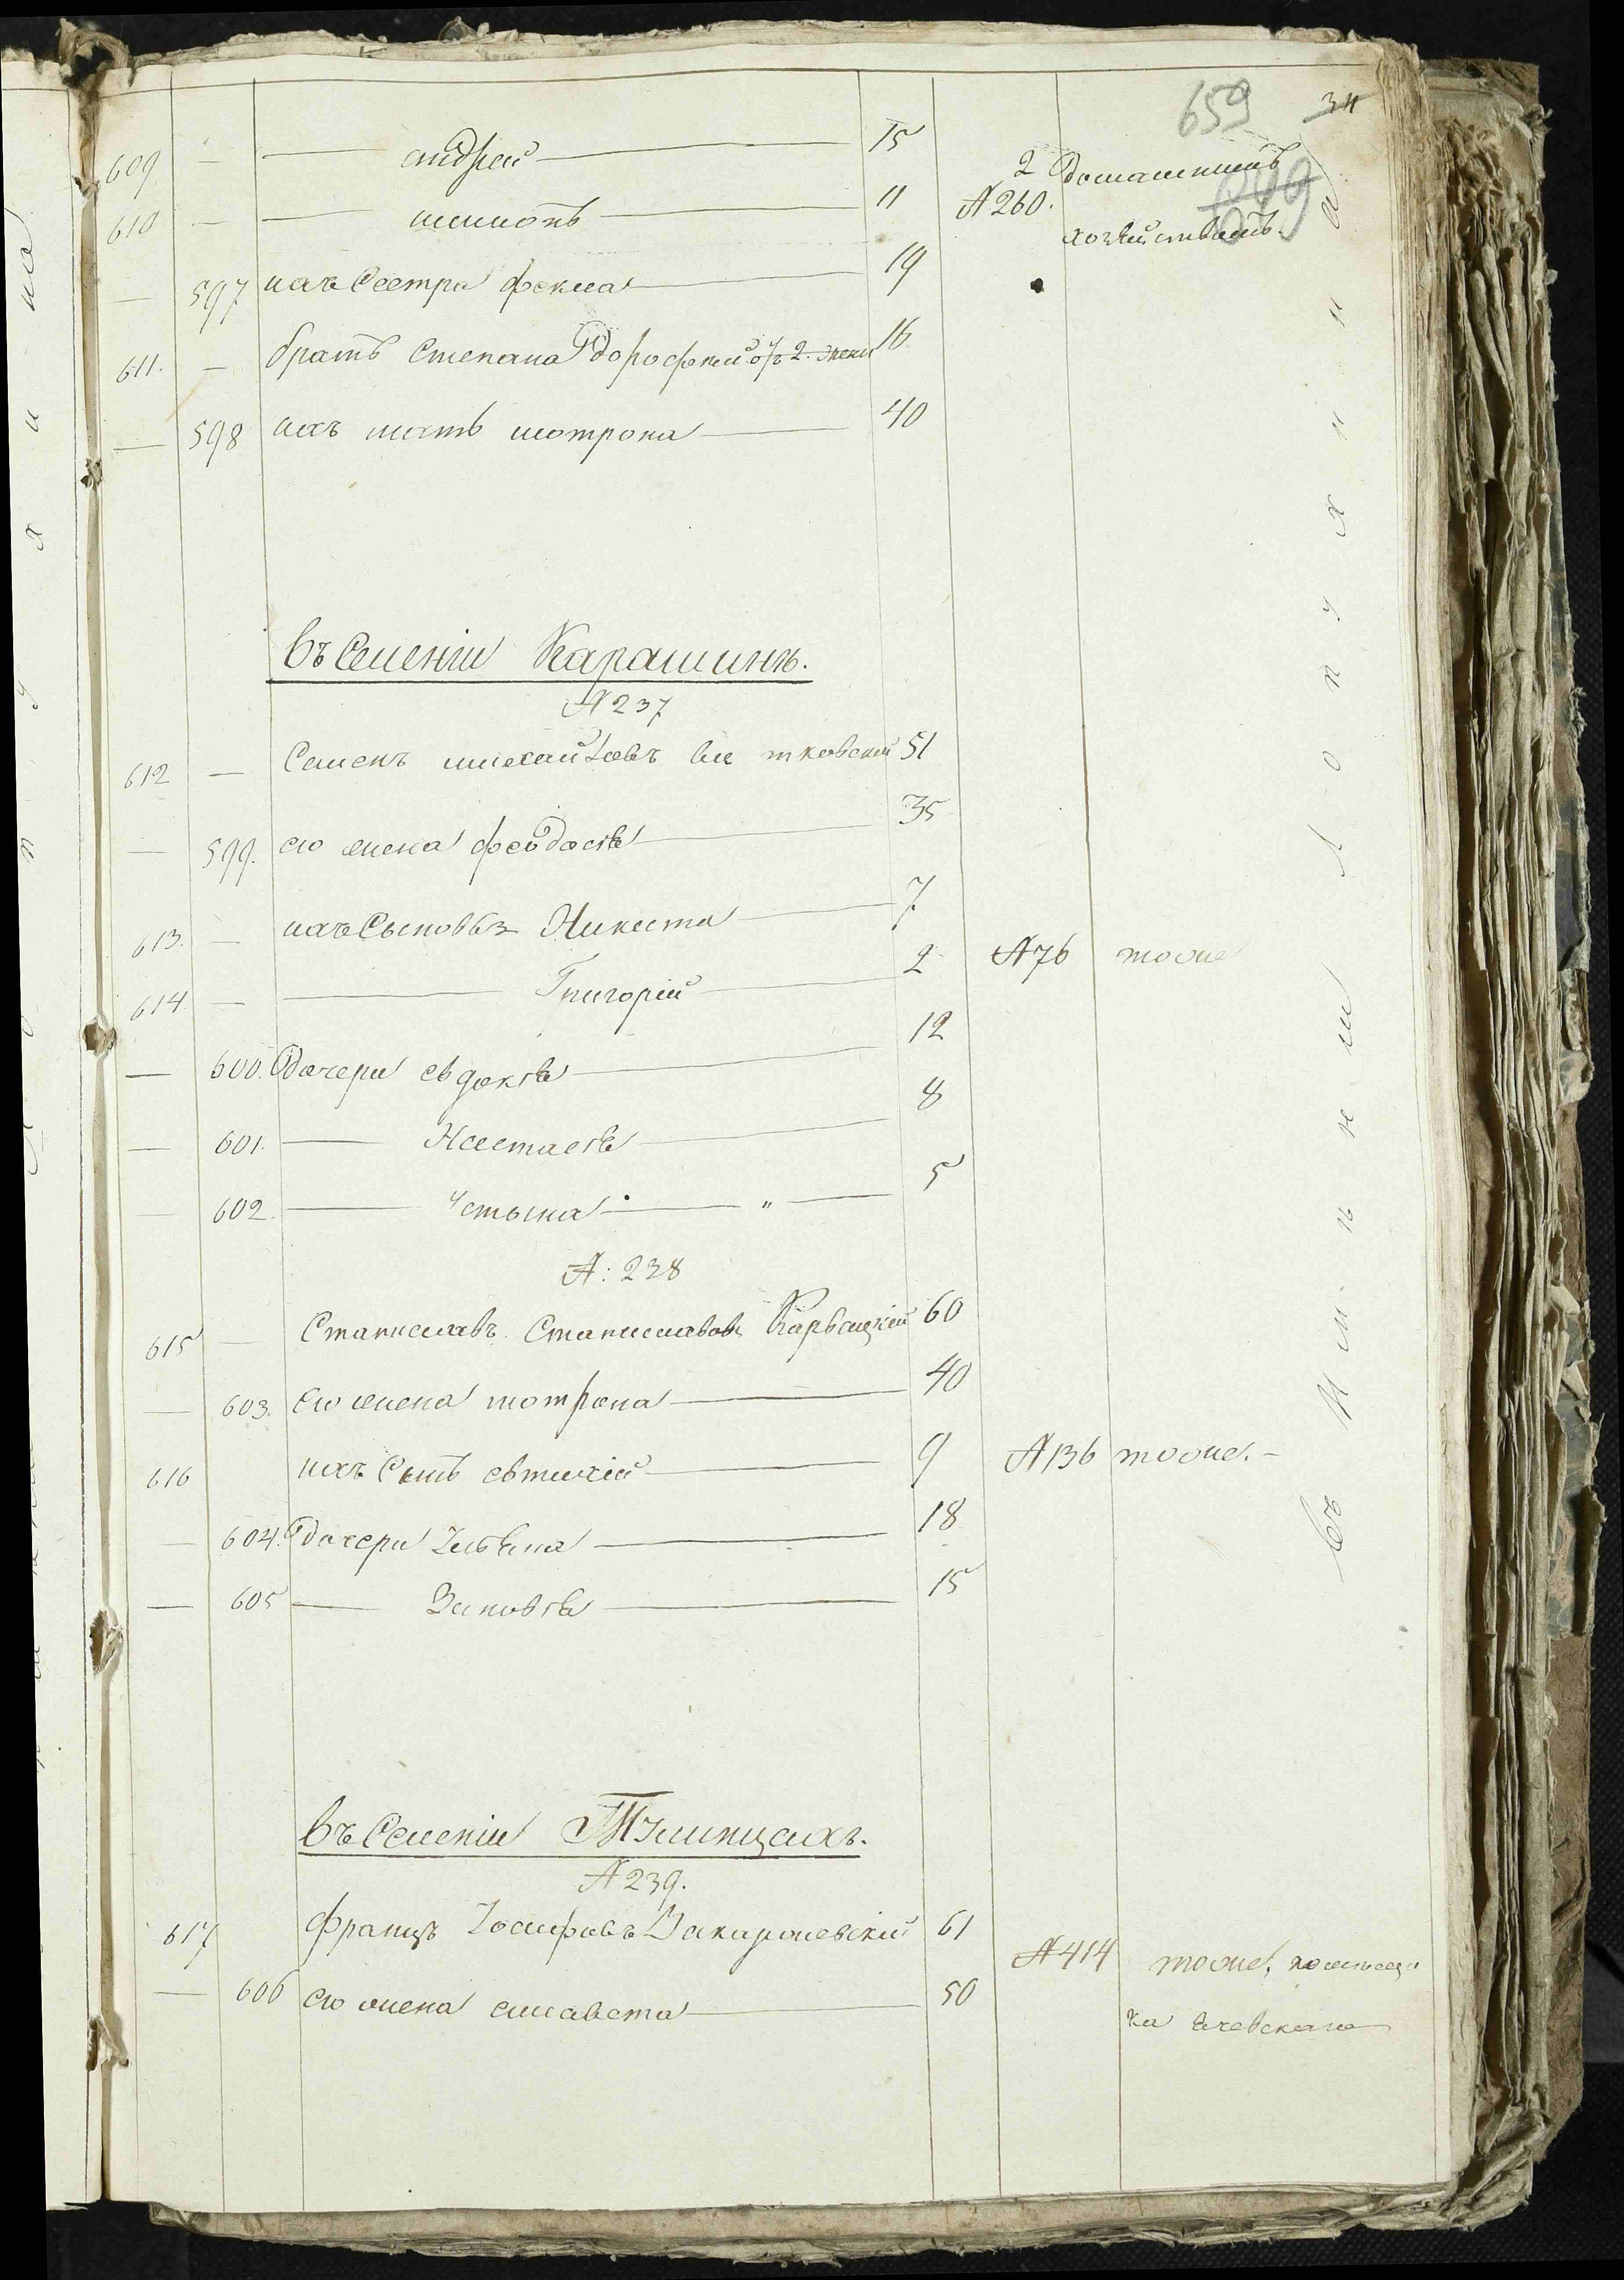 659 34
609 — — андрей — 15
2 Домашнимъ
610 — — шимонъ — 11 №260.
хозяйствомъ.
— 597 ихъ Сестра фекла — 19
611. — братъ Степана Дорофей отъ 2. жены 16
— 598 ихъ мать мотрона — 40
Въ Селеніи Карашинъ.
№237
612 — Семенъ михайловъ 51
— 599. его жена феодосія — 35
613. — ихъ Сыновья Никита — 7
№76 тоже
614. — — Григорій — 2
— 600. Дочери евдокія — 12
— 601. — Настасія — 8
— 602. — Устына — " — 5
№: 238
615 — Станиславъ Станиславовъ Карвицкій 60
— 603. его жена мотрона — 40
616 ихъ Сынъ евтихій — 9 №136 тоже. -
— 604. Дочери Ульяна — 18
— 605 — Зиновія — 15
Въ Селеніи
№239.
617 францъ Іосифовъ 61
№414 тоже,
— 606 его жена елисавета — 50